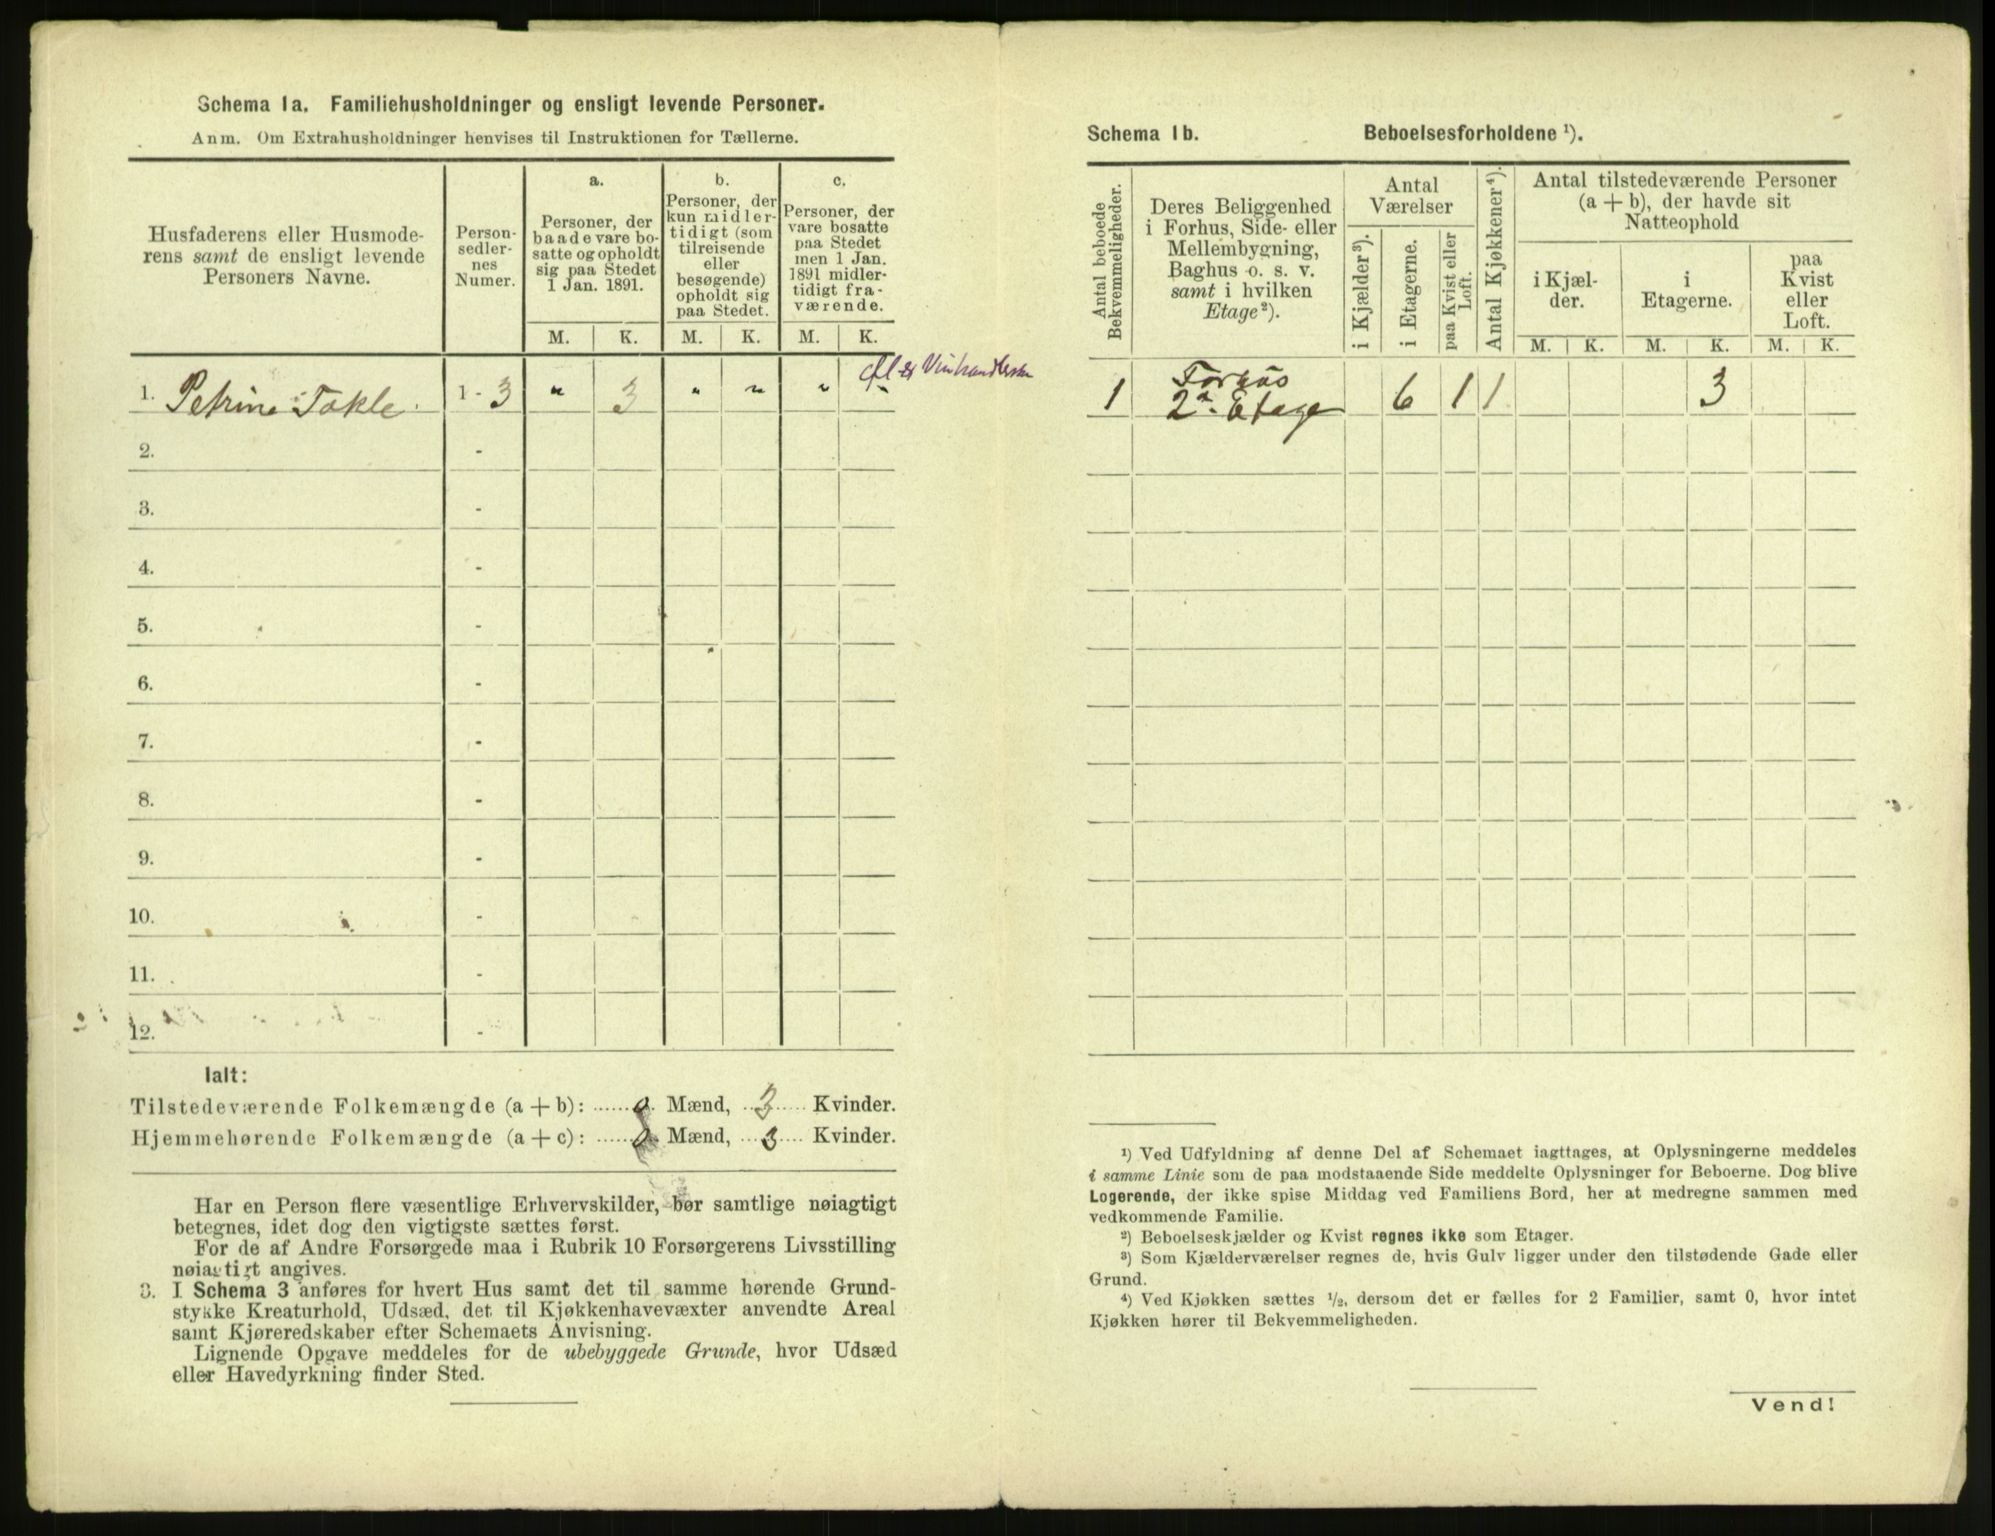 Schema 1a. Familiehusholdninger og ensligt levende Personer.
Anm. Om Extrahusholdninger henvises til Instruktionen for Tællerne.
Husfaderens eller Husmode-
rens samt de ensligt levende
Personers Navne.
Person-
sedler-
nes
Numer.
a.
Personer, der
baade vare bo-
satte og opholdt
sig paa Stedet
1 Jan. 1891.
M. K.
b.
Personer, der
kun midler-
tidigt (som
tilreisende
eller
besøgende)
opholdt sig
paa Stedet.
M. K.
c.
Personer, der
vare bosatte
paa Stedet
men 1 Jan.
1891 midler-
tidigt fra-
værende.
M. K.
1. Petrine Takle. 1 - 3 " 3 " " " "
2. -
3. -
4. -
5. -
6. -
7. -
8. -
9. -
10. -
11. -
12. -
Ialt:
Tilstedeværende Folkemængde (a + b): 0 Mænd, 3 Kvinder.
Hjemmehørende Folkemængde (a + c): 0 Mænd, 3 Kvinder.
Har en Person flere væsentlige Erhvervskilder, bør samtlige nøiagtigt
betegnes, idet dog den vigtigste sættes først.
For de af Andre Forsørgede maa i Rubrik 10 Forsørgerens Livsstilling
nøiagtigt angives.
3. I Schema 3 anføres for hvert Hus samt det til samme hørende Grund-
stykke Kreaturhold, Udsæd, det til Kjøkkenhavevæxter anvendte Areal
samt Kjøreredskaber efter Schemaets Anvisning.
Lignende Opgave meddeles for de ubebyggede Grunde, hvor Udsæd
eller Havedyrkning finder Sted.
Schema 1b. Beboelsesforholdene ¹).
Antal beboede
Bekvemmeligheder.
Deres Beliggenhed
i Forhus, Side- eller
Mellembygning,
Baghus o. s. v.
samt i hvilken
Etage²).
Antal
Værelser
i Kjælder³).
i Etagerne.
paa Kvist eller
Loft.
Antal Kjøkkener⁴).
Antal tilstedeværende Personer
(a + b), der havde sit
Natteophold
i Kjæl-
der.
M. K.
i
Etagerne.
M. K.
paa
Kvist
eller
Loft.
M. K.
1 Forhus
2den Etage 6 1 1 3
¹) Ved Udfyldning af denne Del af Schemaet iagttages, at Oplysningerne meddeles
i samme Linie som de paa modstaaende Side meddelte Oplysninger for Beboerne. Dog blive
Logerende, der ikke spise Middag ved Familiens Bord, her at medregne sammen med
vedkommende Familie.
²) Beboelseskjælder og Kvist regnes ikke som Etager.
³) Som Kjælderværelser regnes de, hvis Gulv ligger under den tilstødende Gade eller
Grund.
⁴) Ved Kjøkken sættes ½, dersom det er fælles for 2 Familier, samt 0, hvor intet
Kjøkken hører til Bekvemmeligheden.
Vend!